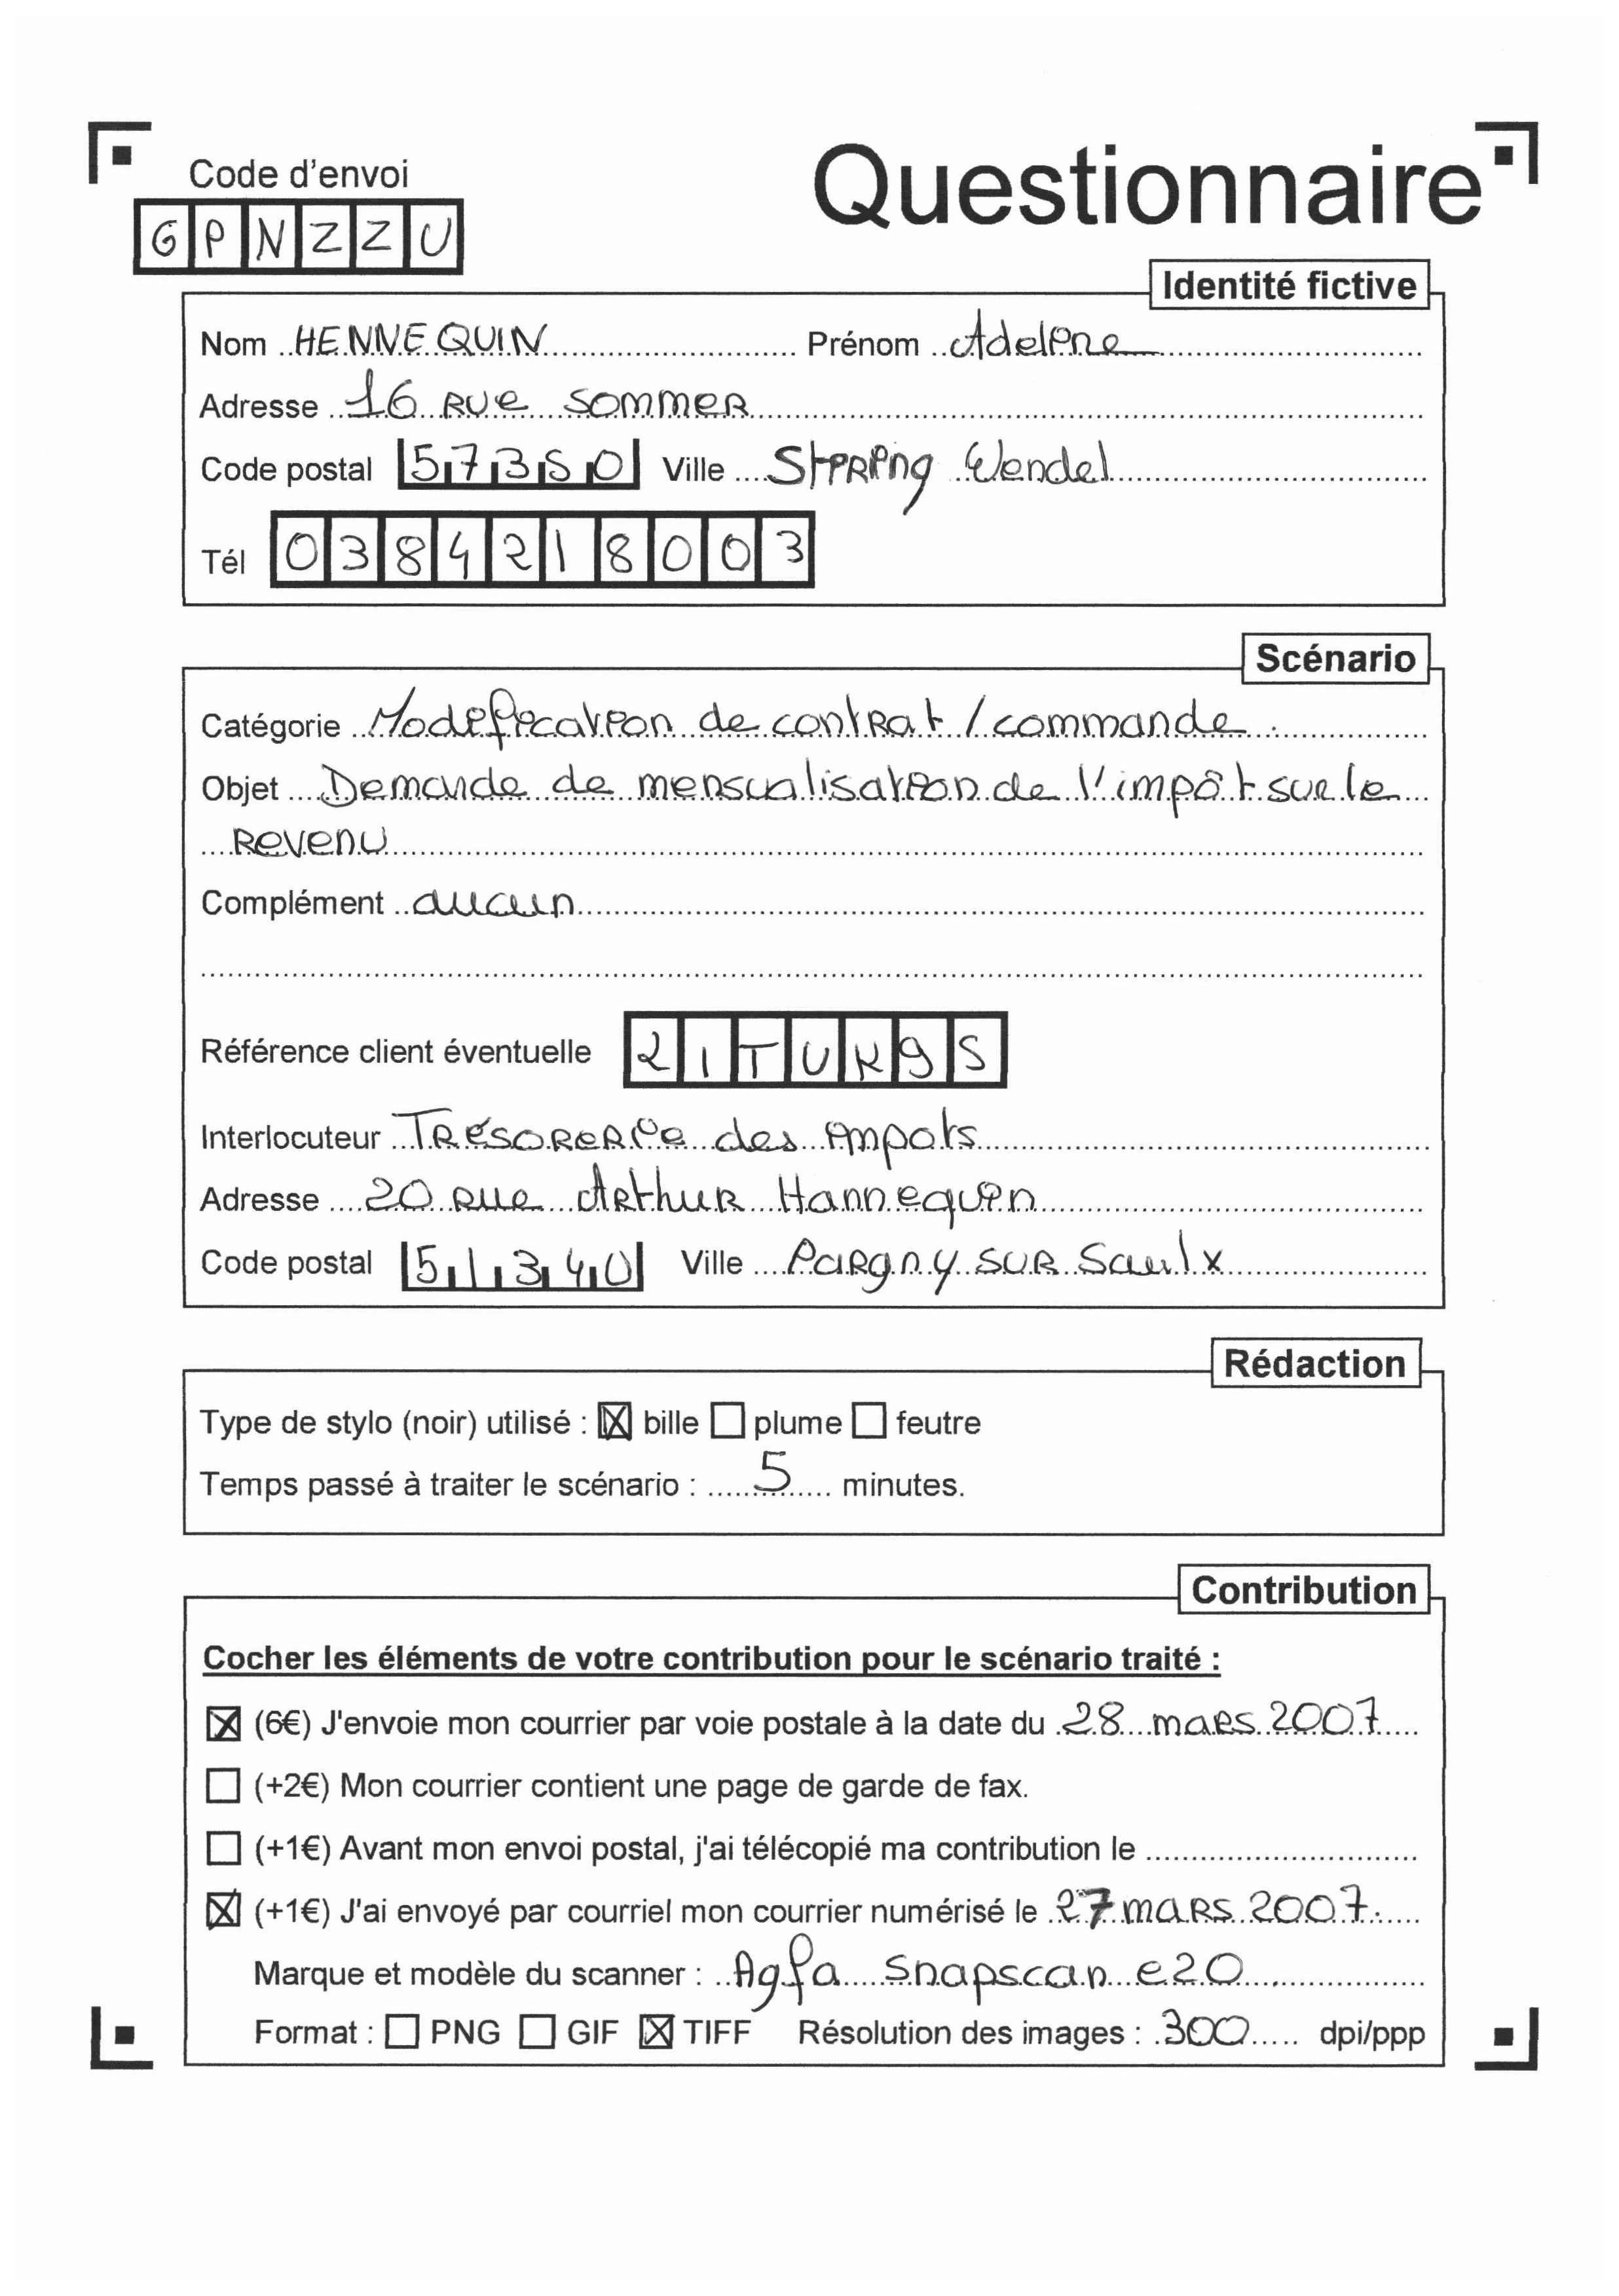 Code d'envoi
Questionnaire
GPNZZU
Identité fictive
Nom HENNEQUIN Prénom Adeline
Adresse 16 Rue Sommer
Code postal 57350 Ville Stiring Wendel
Tél 0384218003
Scénario
Catégorie Modification de contrat / commande
Objet Demande de mensualisation de l'impôt sur le
Revenu
Complément aucun
Référence client éventuelle 2ITUK9S
Interlocuteur Trésorerie des impots
Adresse 20 rue Arthur Hannequin
Code postal 51340 Ville Pargny sur Saulx
Rédaction
Type de stylo (noir) utilisé : ☒ bille ☐ plume ☐ feutre
Temps passé à traiter le scénario : 5 minutes.
Contribution
Cocher les éléments de votre contribution pour le scénario traité :
☒ (6€) J'envoie mon courrier par voie postale à la date du 28 mars 2007
☐ (+2€) Mon courrier contient une page de garde de fax.
☐ (+1€) Avant mon envoi postal, j'ai télécopié ma contribution le
☒ (+1€) J'ai envoyé par courriel mon courrier numérisé le 27 mars 2007.
Marque et modèle du scanner : Agfa snapscan e20
Format : ☐ PNG ☐ GIF ☒ TIFF Résolution des images : 300 dpi/ppp